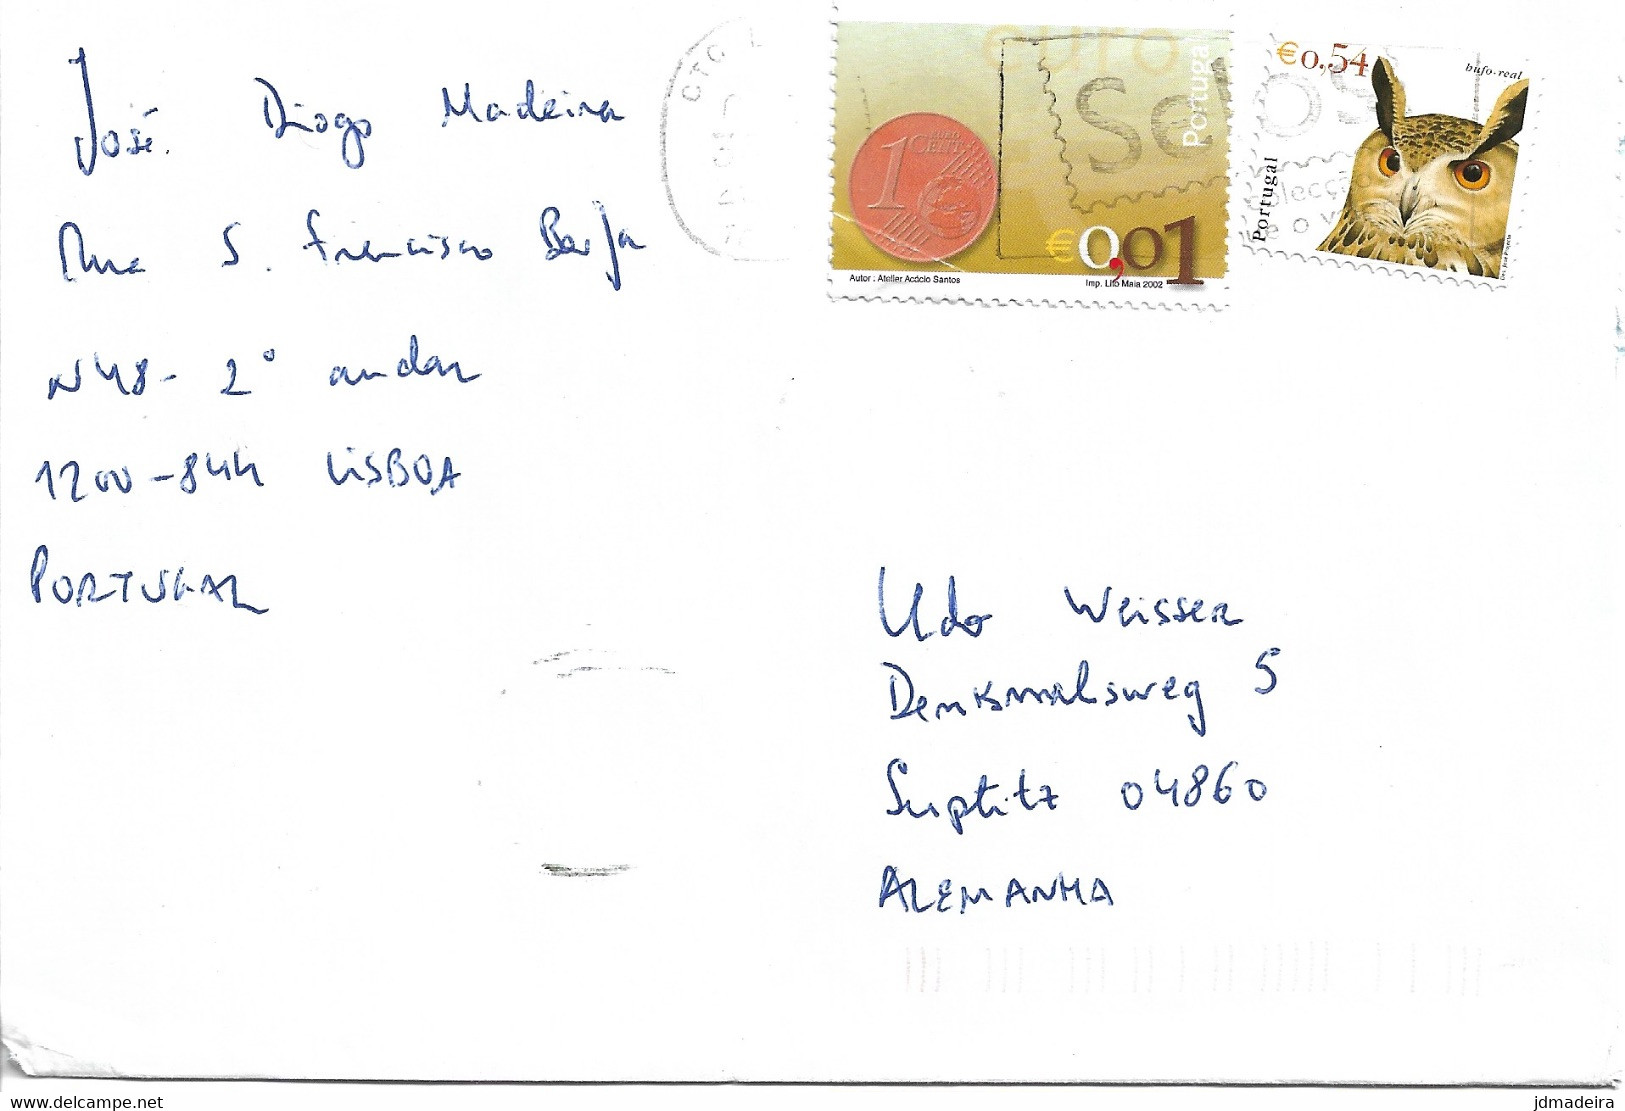 José Diogo Madeira
Rua S. Francisco Borja
N48 - 2º andar
1200-844 LISBOA
PORTUGAL
CTC
euro
Portugal
Se
1
EURO
CENT
€0,01
Autor : Atelier Acácio Santos
Imp. Lito Maia 2002
€0,54
bufo-real
Portugal
os
colecç
e o v
Udo Weisser
Denkmalsweg 5
Suptitz 04860
ALEMANHA
www.delcampe.net
jdmadeira